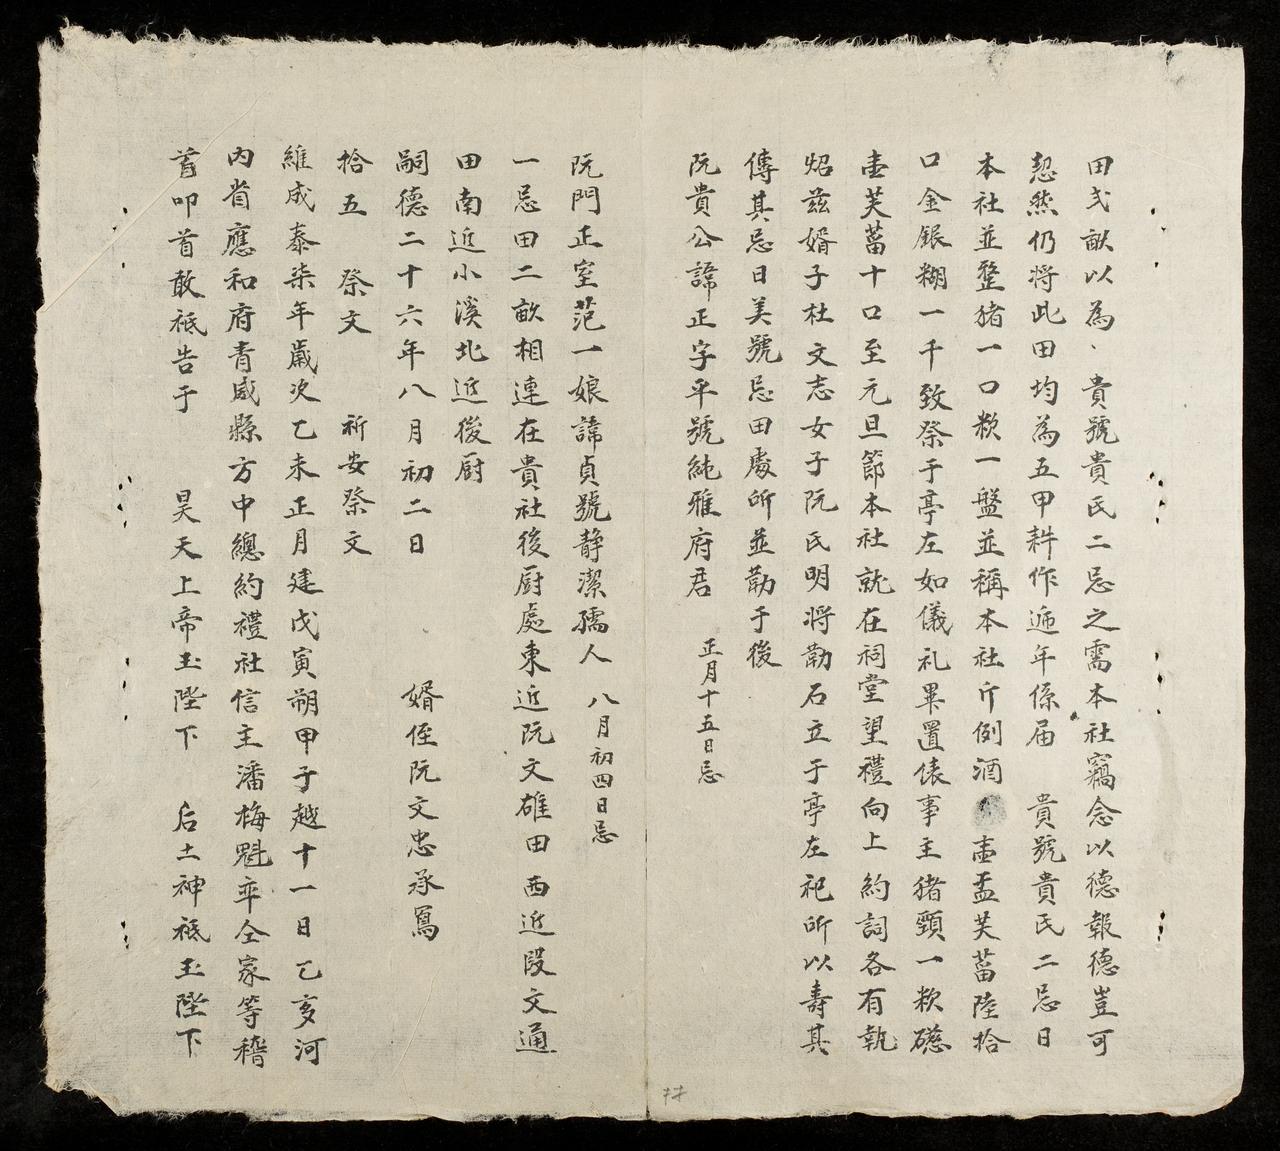 田弍畝以為、貴號貴氏二忌之需本社竊念以德報德豈可
恝然仍将此田均為五甲耕作逓年係届 貴號貴氏二忌日
本社並整猪一口粆一盤並稱本社斤例酒 壷盂芙蒥陸拾
口金銀糊一千致祭于亭左如儀礼畢置俵事主猪頸一粆礠
壷芙蒥十口至元旦節本社就在祠堂望禮向上約詞各有執
炤兹婿子杜文志女子阮氏明将勒石立于亭左祀所以壽其
傳其忌日美號忌田處所並勒于後
阮貴公諱正字平號純雅府君 正月十五日忌
阮門正室范一娘諱貞號静潔孺人 八月初四日忌
一忌田二畝相連在貴社後厨處東近阮文雄田西近段文通
田南近小溪北近後厨
嗣德二十六年八月初二日 婿侄阮文忠承寫
拾五 祭文 祈安祭文
維成泰柒年歲次乙未正月建戊寅朔甲子越十一日乙亥河
内省應和府青威縣方中總約禮社信主潘梅魁卒仝家等稽
首叩首敢祗告于 昊天上帝玉陛下 后土神祗玉陛下